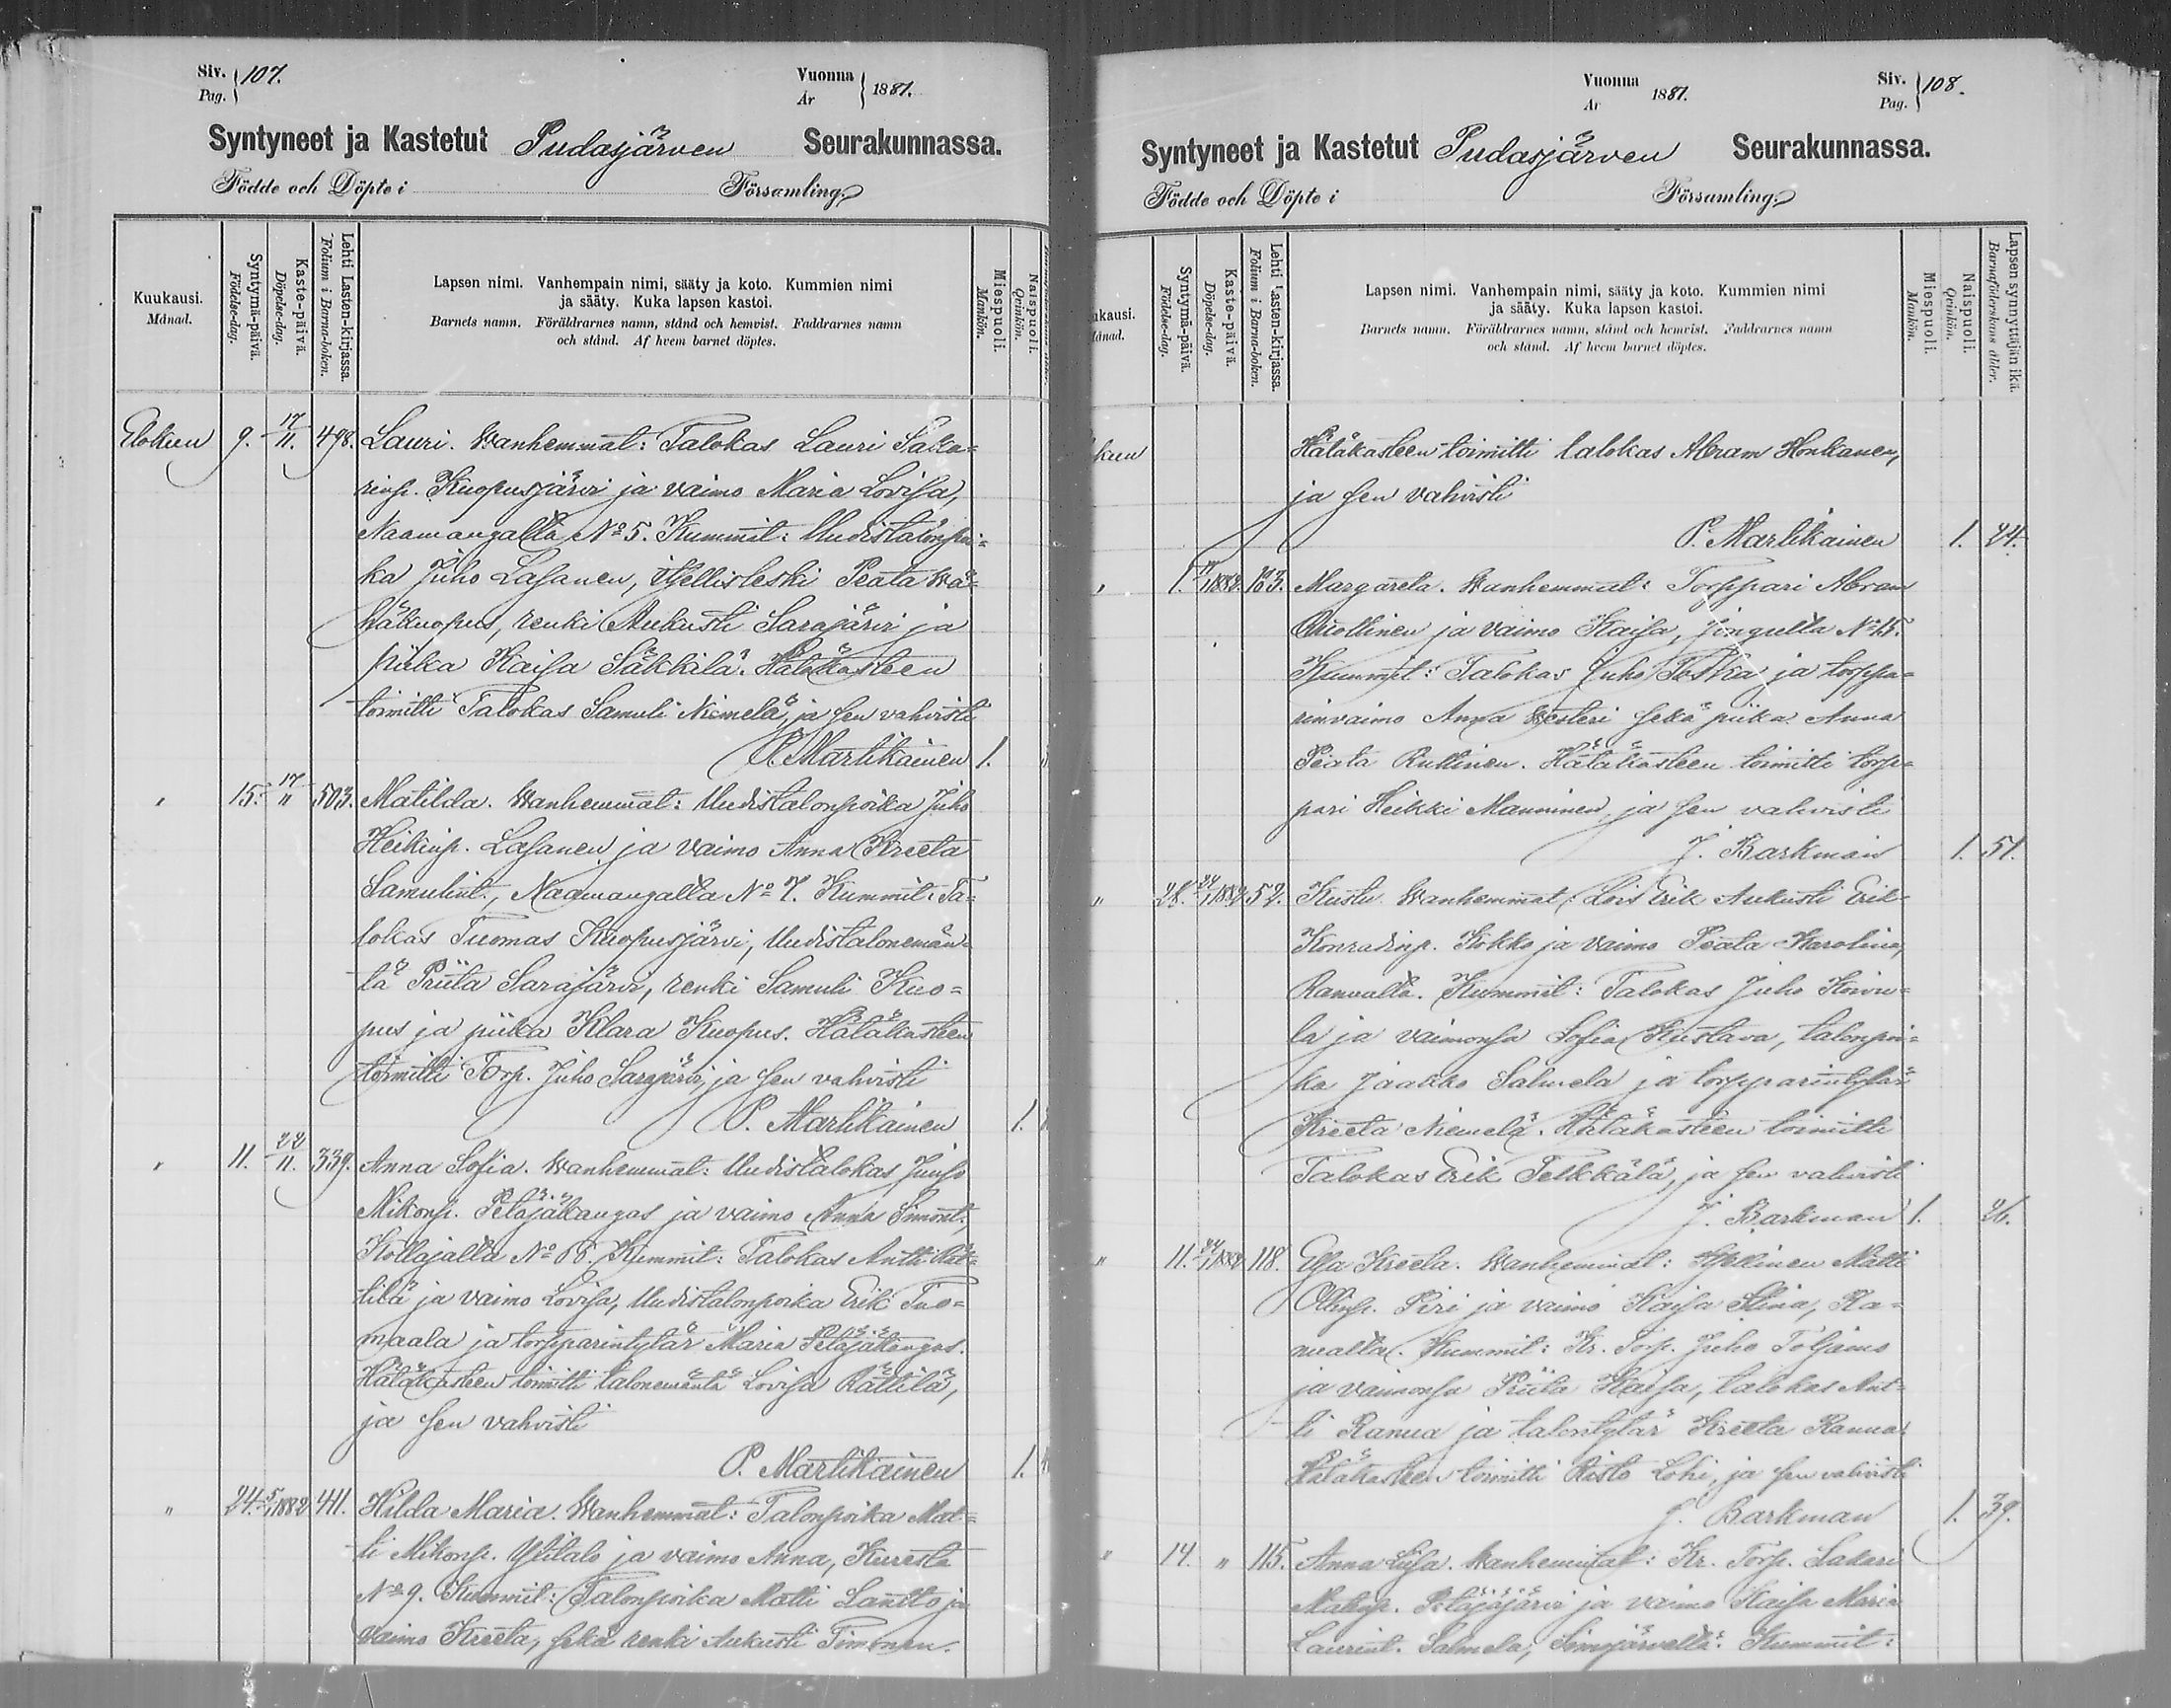 Siv. 107.
Pag.
Vuonna 1881.
År
Syntyneet ja Kastetut Pudasjärven Seurakunnassa.
Födde och Döpte i Församling.
Kuukausi.
Månad.
Syntymä-päivä.
Födelse-dag.
Kaste-päivä.
Döpelse-dag.
Lehti Lasten-kirjassa.
Folium i Barna-boken.
Lapsen nimi. Vanhempain nimi, sääty ja koto. Kummien nimi
ja sääty. Kuka lapsen kastoi.
Barnets namn. Föräldrarnes namn, stånd och hemvist. Faddrarnes namn
och stånd. Af hvem barnet döptes.
Miespuoli.
Mankön.
Naispuoli.
Qvinkön.
Elokuu 9. 17/11. 498. Lauri. Wanhemmat: Talokas Lauri Saka=
rinp. Kuopusjärvi ja vaimo Maria Lovisa,
Naamangalta No 5. Kummit: Uudistalonpoi=
ka Juho Lasanen, itsellisleski Peata Wä=
häkuopus, renki Aukusti Sarajärvi ja
piika Kaisa Säkkilä. Hätäkasteen
toimitti Talokas Samuli Niemelä, ja sen vahvisti
P. Martikainen 1.
" 15. 17/11 503. Matilda. Wanhemmat: Uudistalonpoika Juho
Heikinp. Lasanen ja vaimo Anna Kreeta
Samulint., Naamangalta No 7. Kummit: Ta=
lokas Tuomas Kuopusjärvi, Uudistalonemän=
tä Priita Sarajärvi, renki Samuli Kuo=
pus ja piika Klara Kuopus. Hätäkasteen
toimitti Torp. Juho Sarajärvi, ja sen vahvisti
P. Martikainen 1.
" 11. 22/11. 339. Anna Sofia. Wanhemmat: Uudistalokas Juuso
Mikonp. Petäjäkangas ja vaimo Anna Simont.,
Kollajalta No 66. Kummit: Talokas Antti Rät=
tilä ja vaimo Lovisa, Uudistalonpoika Erik Tuo=
maala ja torpparintytär Maria Petäjäkangas.
Hätäkasteen toimitti talonemäntä Lovisa Rättilä,
ja sen vahvisti
P. Martikainen 1.
" 24. 5/1 1882 411. Hilda Maria. Wanhemmat: Talonpoika Mat=
ti Mikonp. Ylitalo ja vaimo Anna, Kuresta
No 9. Kummit: Talonpoika Matti Lantto ja
vaimo Kreeta, sekä renki Aukusti Timonen.
Vuonna 1881.
År
Siv. 108.
Pag.
Syntyneet ja Kastetut Pudasjärven Seurakunnassa.
Födde och Döpte i Församling.
ukausi.
Månad.
Syntymä-päivä.
Födelse-dag.
Kaste-päivä.
Döpelse-dag.
Lehti Lasten-kirjassa.
Folium i Barna-boken.
Lapsen nimi. Vanhempain nimi, sääty ja koto. Kummien nimi
ja sääty. Kuka lapsen kastoi.
Barnets namn. Föräldrarnes namn, stånd och hemvist. Faddrarnes namn
och stånd. Af hvem barnet döptes.
Miespuoli.
Mankön.
Naispuoli.
Qvinkön.
Lapsensynnyttäjän ikä.
Barnaföderskans ålder.
kuu Hätäkasteen toimitti talokas Abram Honkanen,
ja sen vahvisti
P. Martikainen 1. 24.
" 1. 1882. 163. Margareta. Wanhemmat: Torppari Abram
Puollinen ja vaimo Kaisa, Jongulta No 15.
Kummit: Talokas Juho Toska ja torppa=
rinvaimo Anna Westeri sekä piika Anna
Peata Rullinen. Hätäkasteen toimitti torp=
pari Heikki Manninen, ja sen vahvisti
J. Barkman 1. 51.
" 28. 24/1 1882 52. Kustu. Wanhemmat: Lois Erik Aukusti Erik
Konradinp. Kokko ja vaimo Peata Karolina,
Ranualta. Kummit: Talokas Juho Koivu=
la ja vaimonsa Sofia Kustava, talonpoi=
ka Jaakko Salmela ja torpparintytär
Kreeta Niemelä. Hätäkasteen toimitti
Talokas Erik Telkkälä, ja sen vahvisti
J. Barkman 1. 26.
" 11. 24/1 1882 118. Elsa Kreeta. Wanhemmat: Itsellinen Matti
Ollinp. Piri ja vaimo Kaisa Stina, Ra=
nualta. Kummit: Kr. Torp. Juho Toljamo
ja vaimonsa Priita Kaisa, talokas Ant=
ti Ranua ja talontytär Kreeta Ranua.
Hätäkasteen toimitti Risto Lohi, ja sen vahvisti
J. Barkman 1. 39.
" 14. " 115. Anna Liisa. Wanhemmat: Kr. Torp. Sakari
Matinp. Petäjäjärvi ja vaimo Kaisa Maria
Laurint. Salmela, Simojärveltä. Kummit: